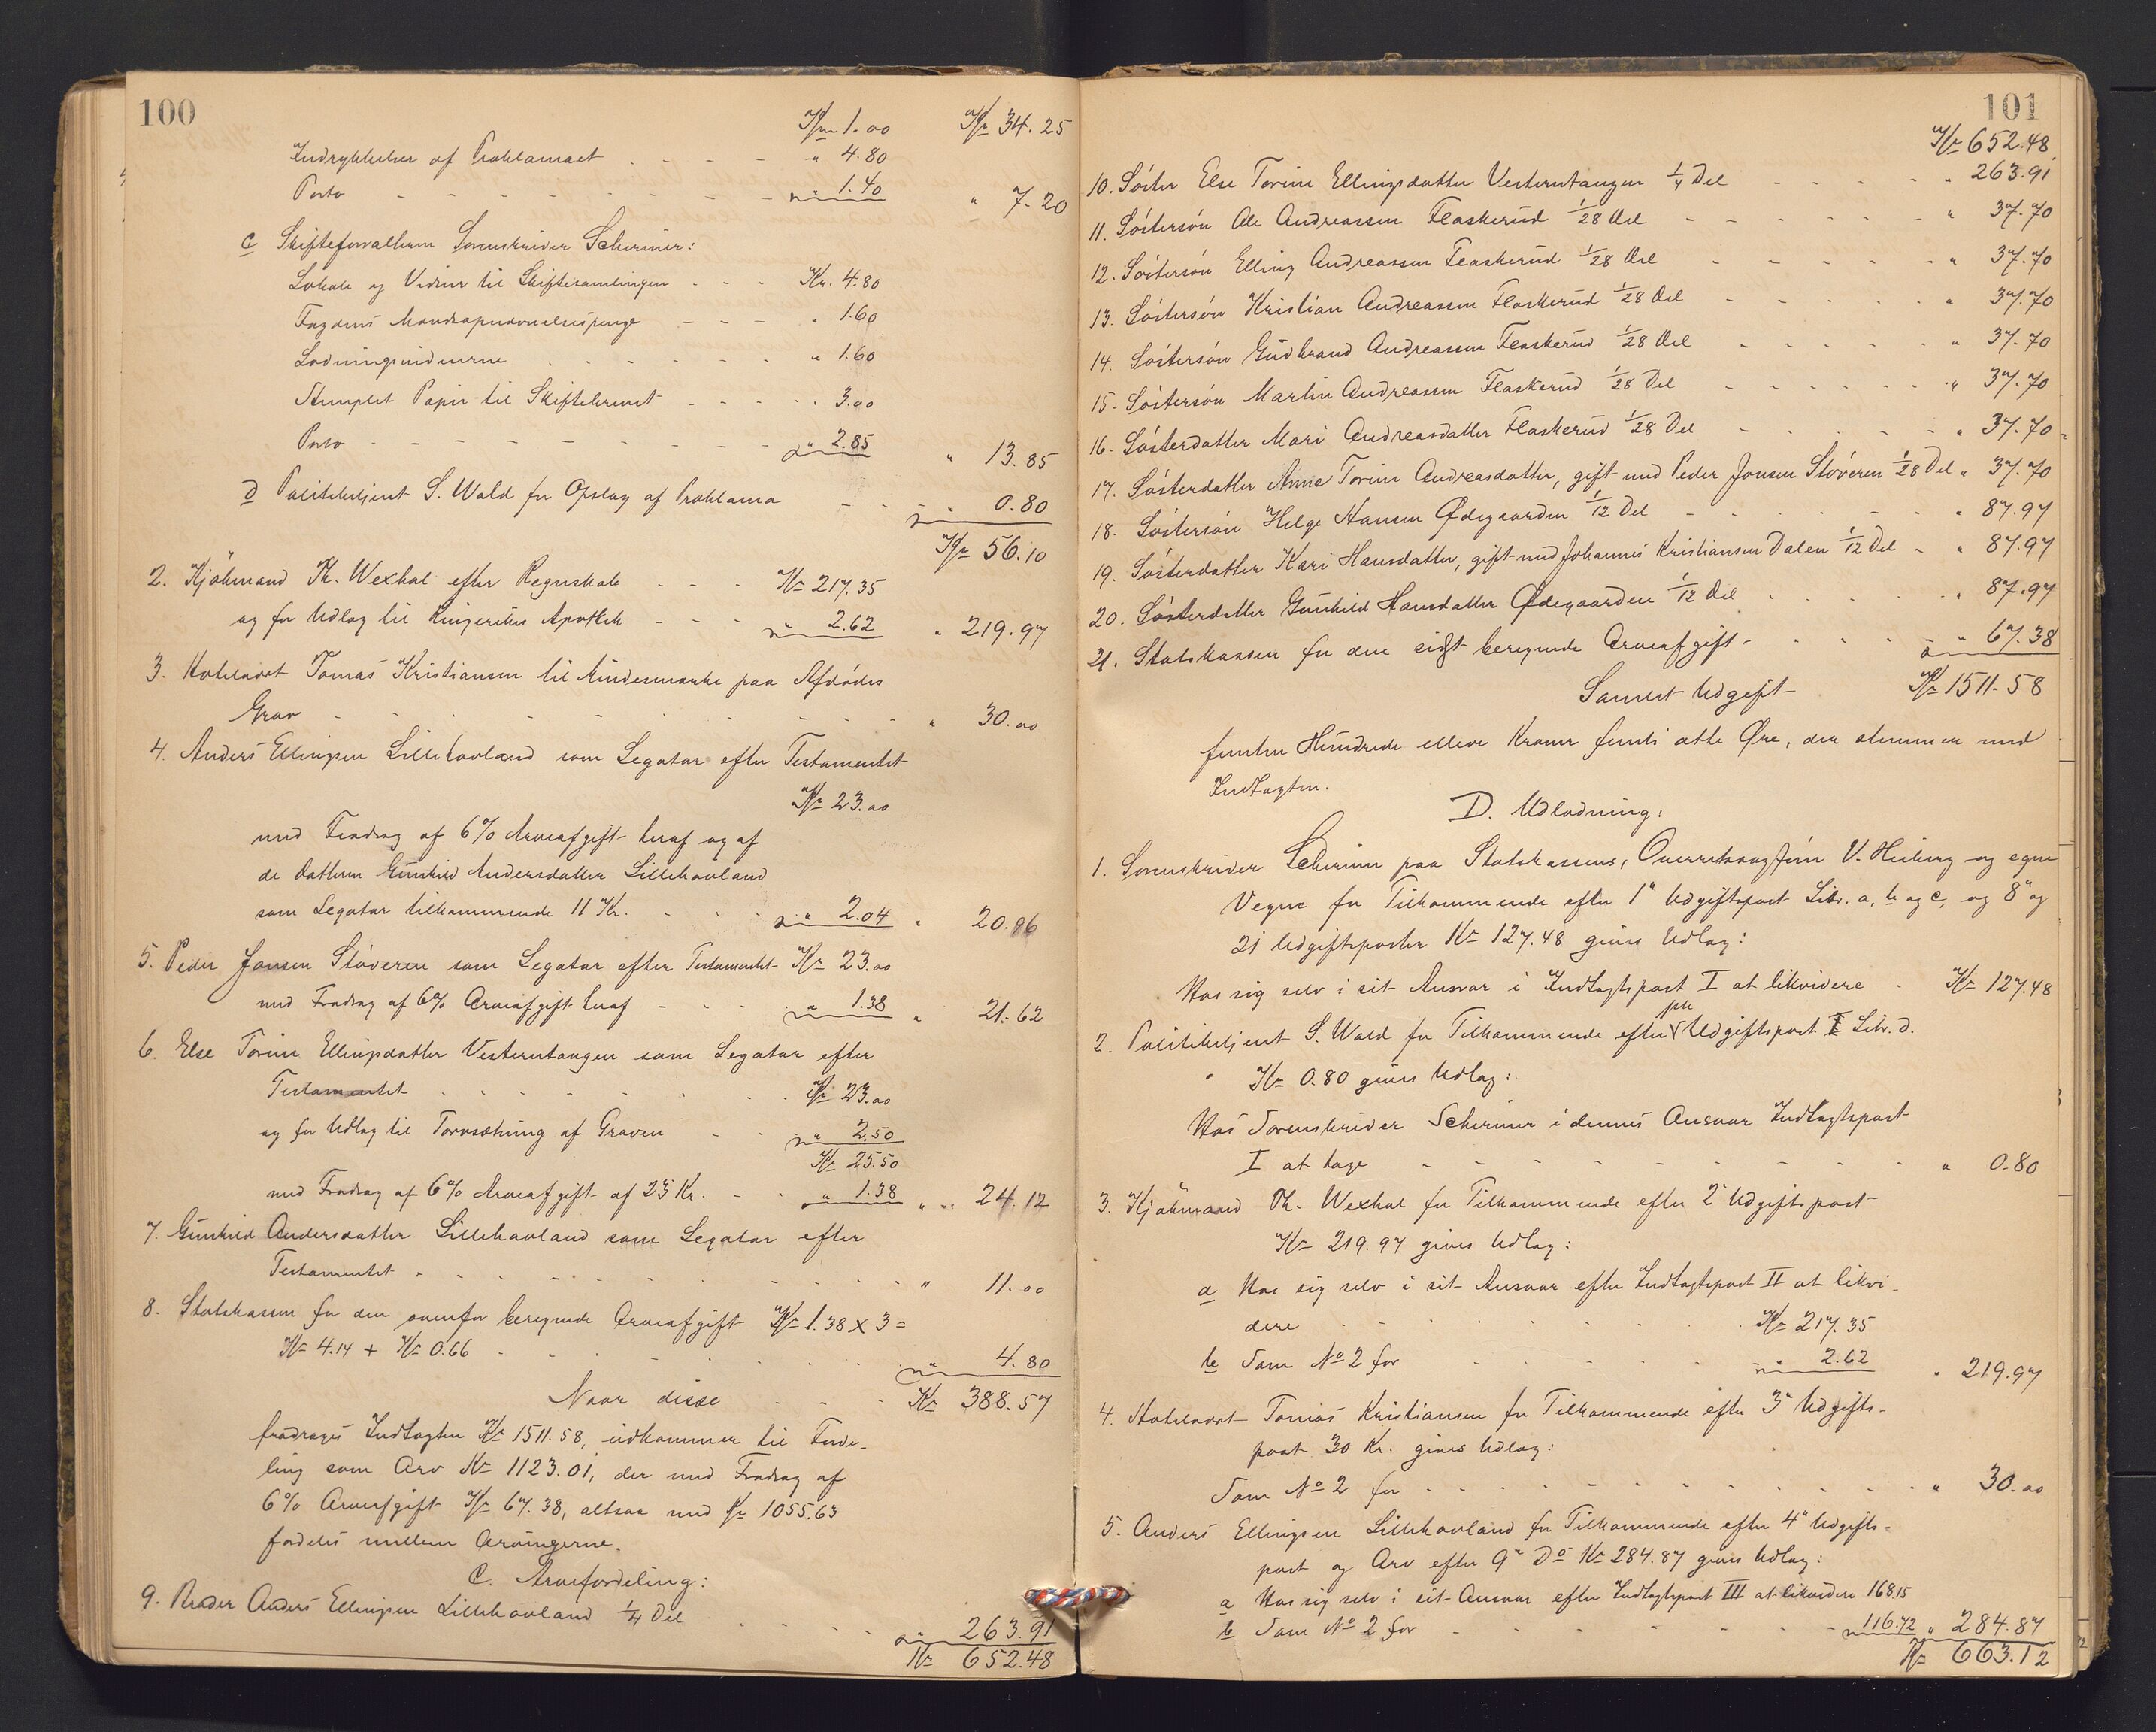 100
Kr 1.00 Kr 34.25
Indrykkelser af Proklamaet - - - - " 4.80
Porto - - - - - - " 1.40 " 7.20
c Skifteforvalteren Sorenskriver Scheriner:
Lokale og Vidner til Skiftesamlingen - - - Kr. 4.80
- - - " 1.60
- - - " 1.60
Stemplet Papir til Skiftebrevet - - - - " 3.00
Porto - - - - - - - " 2.85 " 13.85
d Politibetjent S. Wald for Opslag af Proklama - - - - 0.80
Kr 56.10
2. Kjøbmand Th. Wexhal efter Regnskab - - - Kr 217.35
og for Udlæg til Ringerikes Apothek - - - " 2.62 " 219.97
3. Tomas Kristiansen til Mindesmærke paa Afdødes
Grav - - - - - - - - - " 30.00
4. Anders Ellingsen Lillehavland som Legatar efter Testamentet
Kr 23.00
med Fradrag af 6% Arveafgift heraf og af
de Datteren Gunhild Andersdatter Lillehavland
som Legatar tilkommende 11 Kr. - - - " 2.04 " 20.96
5. Peder Jonsen Støveren som Legatar efter Testamentet Kr 23.00
med Fradrag af 6% Arveafgift heraf - - - " 1.38 " 21.62
6. Else Torine Ellingsdatter Vesterntangen som Legatar efter
Testamentet - - - - - - Kr 23.00
og for Udlæg til Torvsætning af Graven - - - " 2.50
Kr 25.50
med Fradrag af 6% Arveafgift af 23 Kr. - - " 1.38 " 24.12
7. Gunhild Andersdatter Lillehavland som Legatar efter
Testamentet - - - - - - - - - " 11.00
8. Statskassen for den ovenfor beregnede Arveafgift Kr 1.38 x 3 =
Kr 4.14 + Kr 0.66 - - - - - - " 4.80
Naar disse - - - Kr 388.57
fradrages Indtægten Kr 1511.58, udkommer til Forde-
ling som Arv Kr 1123.01, der med Fradrag af
6% Arveafgift Kr 67.38, altsaa med Kr 1055.63
fordeles mellem Arvingerne.
C. Arvefordeling:
9. Broder Anders Ellingsen Lillehavland 1/4 Del - - - - " 263.91
Kr 652.48
101
Kr 652.48
10. Søster Else Torine Ellingsdatter Vesterntangen 1/4 Del - - - - - " 263.91
11. Søstersøn Ole Andreassen Flaskerud 1/28 Del - - - - - " 37.70
12. Søstersøn Elling Andreassen Flaskerud 1/28 Del - - - - - " 37.70
13. Søstersøn Kristian Andreassen Flaskerud 1/28 Del - - - - - " 37.70
14. Søstersøn Gudbrand Andreassen Flaskerud 1/28 Del - - - - - " 37.70
15. Søstersøn Martin Andreassen Flaskerud 1/28 Del - - - - - " 37.70
16. Søsterdatter Mari Andreasdatter Flaskerud 1/28 Del - - - - - " 37.70
17. Søsterdatter Anne Torine Andreasdatter, gift med Peder Jonsen Støveren 1/28 Del " 37.70
18. Søstersøn Helge Hansen Ødegaarden 1/12 Del - - - - - " 87.97
19. Søsterdatter Kari Hansdatter, gift med Johannes Kristiansen Dalen 1/12 Del - " 87.97
20. Søsterdatter Gunhild Hansdatter Ødegaarden 1/12 Del - - - - - " 87.97
21. Statskassen for den sidst beregnede Arveafgift - - - - - " 67.38
Samlet Udgift Kr 1511.58
femten Hundrede elleve Kroner femti otte Øre, der stemmer med
Indtægten.
D. Udlodning:
1. Sorenskriver Scheriner paa Statskassens, Overretssagfører V. Heiberg og egne
Vegne for Tilkommende efter 1" Udgiftspost Litr. a, b og c, og 8" og
21 Udgiftsposter Kr 127.48 gives Udlæg:
Hos sig selv i sit Ansvar i Indtægtspost I at likvidere - Kr 127.48
2. Politibetjent S. Wald for Tilkommende efter 1ste Udgiftspost Litr. d.
Kr 0.80 gives Udlæg:
Hos Sorenskriver Scheriner i dennes Ansvar Indtægtspost
I at tage - - - - - - - - - " 0.80
3. Kjøbmand Th. Wexhal for Tilkommende efter 2" Udgiftspost
Kr 219.97 gives Udlæg:
a Hos sig selv i sit Ansvar efter Indtægtspost II at likvi-
dere - - - - - - - Kr 217.35
b Som No 2 for - - - - - " 2.62 " 219.97
4. Tomas Kristiansen for Tilkommende efter 3" Udgifts-
post 30 Kr. gives Udlæg:
Som No 2 for - - - - - - - - - - " 30.00
5. Anders Ellingsen Lillehavland for Tilkommende efter 4" Udgifts-
post og Arv efter 9" Do Kr 284.87 gives Udlæg:
a Hos sig selv i sit Ansvar efter Indtægtspost III at likvidere 168.15
b Som No 2 for - - - - - - - 116.72 " 284.87
Kr 663.12